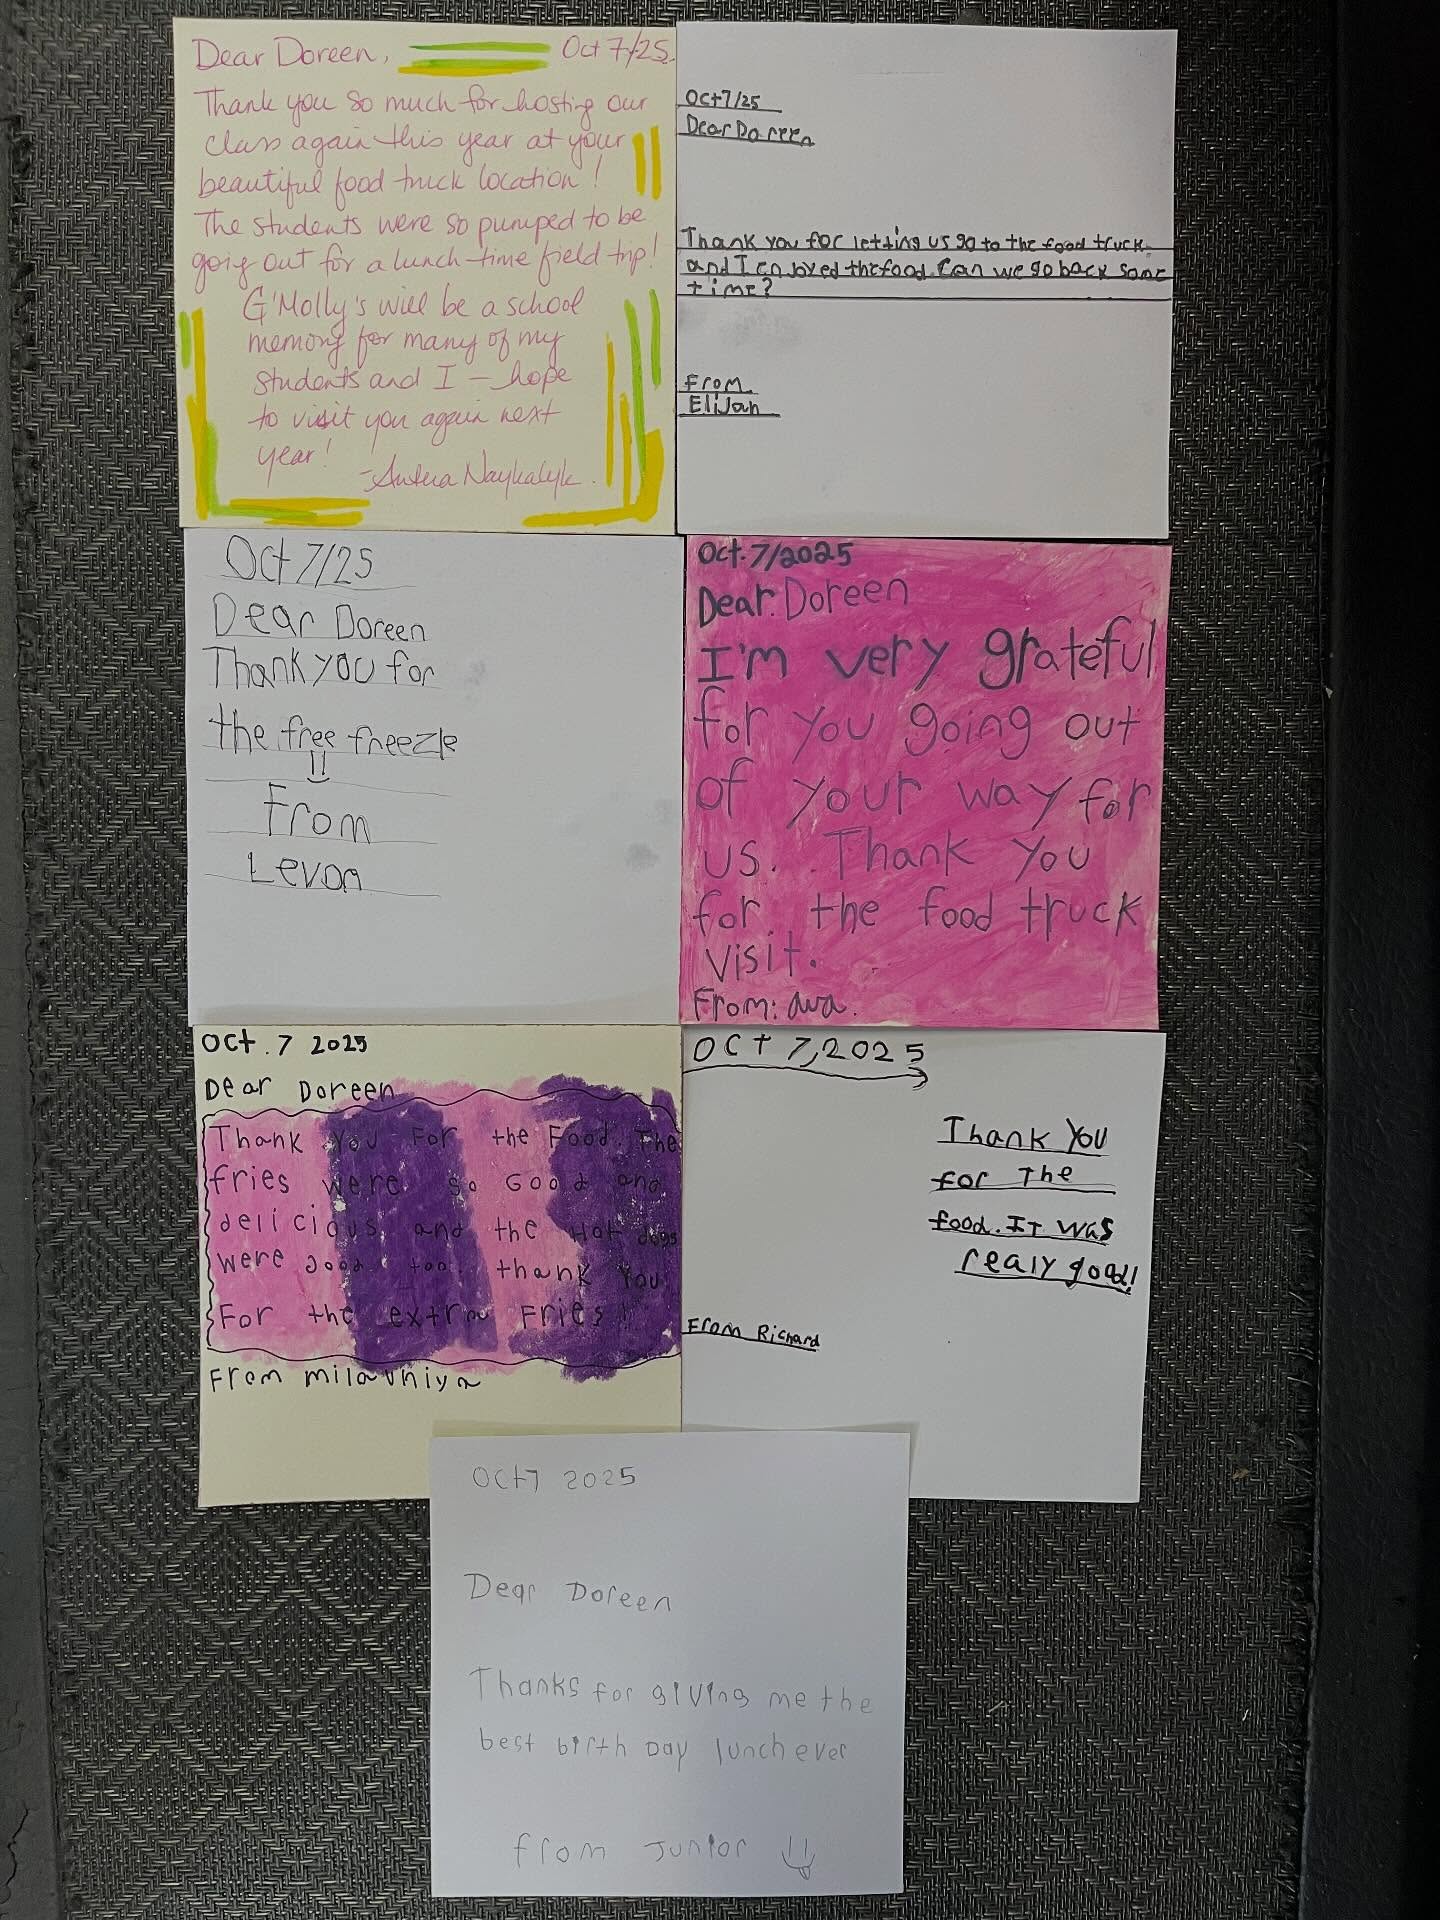 Dear Doreen, Oct 7/25.
Thank you so much for hosting our
class again this year at your
beautiful food truck location!
The students were so pumped to be
going out for a lunch-time field trip!
G'Molly's will be a school
memory for many of my
students and I - hope
to visit you again next
year!
Oct 7/25
Dear Doreen
Thank you for letting us go to the food truck
and I enjoyed the food Can we go back some
time?
From
Elijah
Oct 7/25
Dear Doreen
Thank you for
the free freezie
From
Levon
Oct. 7/2025
Dear. Doreen
I'm very grateful
for you going out
of your way for
us. Thank you
for the food truck
visit.
From: ava.
Oct. 7 2025
Dear Doreen
Thank you For the Food. The
fries were so Good and
delicious and the Hot dogs
were good too. thank you
For the extra Fries!
From milavniya
Oct 7, 2025
Thank you
for The
food. It was
realy good!
From Richard
Oct 7 2025
Dear Doreen
Thanks for giving me the
best birth Day lunch ever
from Junior